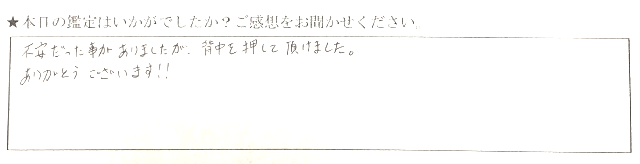 ★本日の鑑定はいかがでしたか？ご感想をお聞かせください。
不安だった事がありましたが、背中を押して頂けました。
ありがとうございます!!